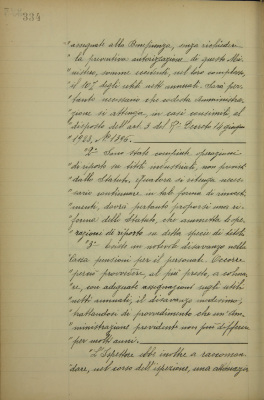 334
"assegnati alla Beneficenza, senza richiedere
"la preventiva autorizzazione di questo Mi-
"nistero, somme eccedenti, nel loro complesso,
"il 10% degli utili netti annuali. Sarà per-
"tanto necessario che codesta Amministra-
"zione si attenga, in casi consimili al
"disposto dell'art. 3 del R° Decreto 14 giugno
"1923, N° 1396.
"2° Sono state compiute operazioni
"di riporto su titoli industriali, non previste
"dallo Statuto, qualora si ritenga neces-
"sario continuare in tale forma di investi-
"menti, dovrà pertanto proporsi una ri-
"forma dello Statuto, che ammetta le ope-
"razioni di riporto su detta specie di titoli.
"3° Esiste un notevole disavanzo nella
"Cassa pensioni per il personale. Occorre
"perciò provvedere, al più presto, a colma-
"re, con adeguate assegnazioni sugli utili
"netti annuali, il disavanzo medesimo,
"trattandosi di provvedimento che un'Am-
"ministrazione prudente non può differire
"per molti anni.
"L'Ispettore ebbe inoltre a raccoman-
dare, nel corso dell'ispezione, una